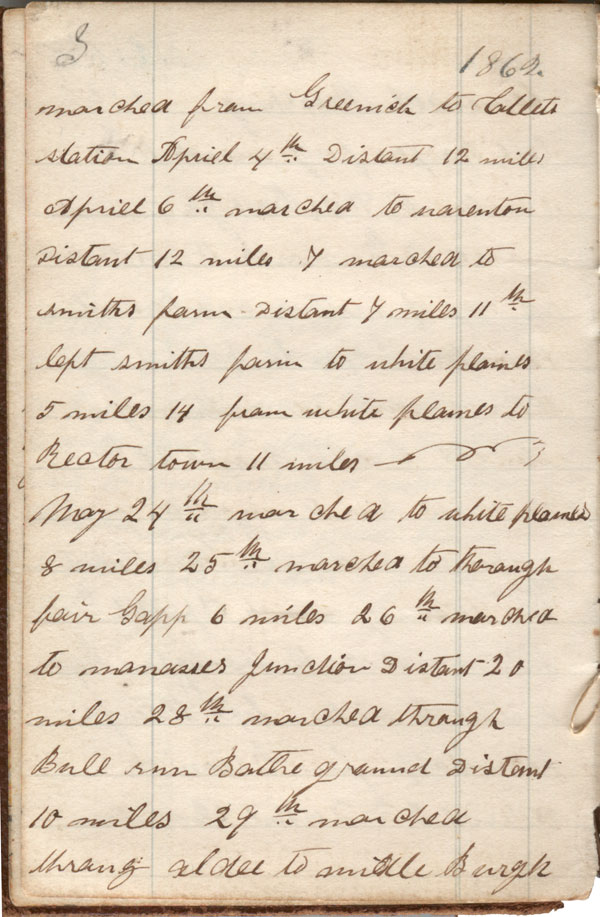 3
1862.
marched from Greenich to Catlets
station Apriel 4th Distant 12 miles
Apriel 6th marched to warenton
Distant 12 miles 7 marched to
smiths farm Distant 7 miles 11th
left smiths farm to white plaines
5 miles 14 from white plaines to
Rector town 11 miles
May 24th marched to white plaines
8 miles 25th marched to thorough
fair Gapp 6 miles 26th marched
to manasses Junction Distant 20
miles 28th marched through
Bull run Batle ground Distant
10 miles 29th marched
throug aldee to midle Burgh